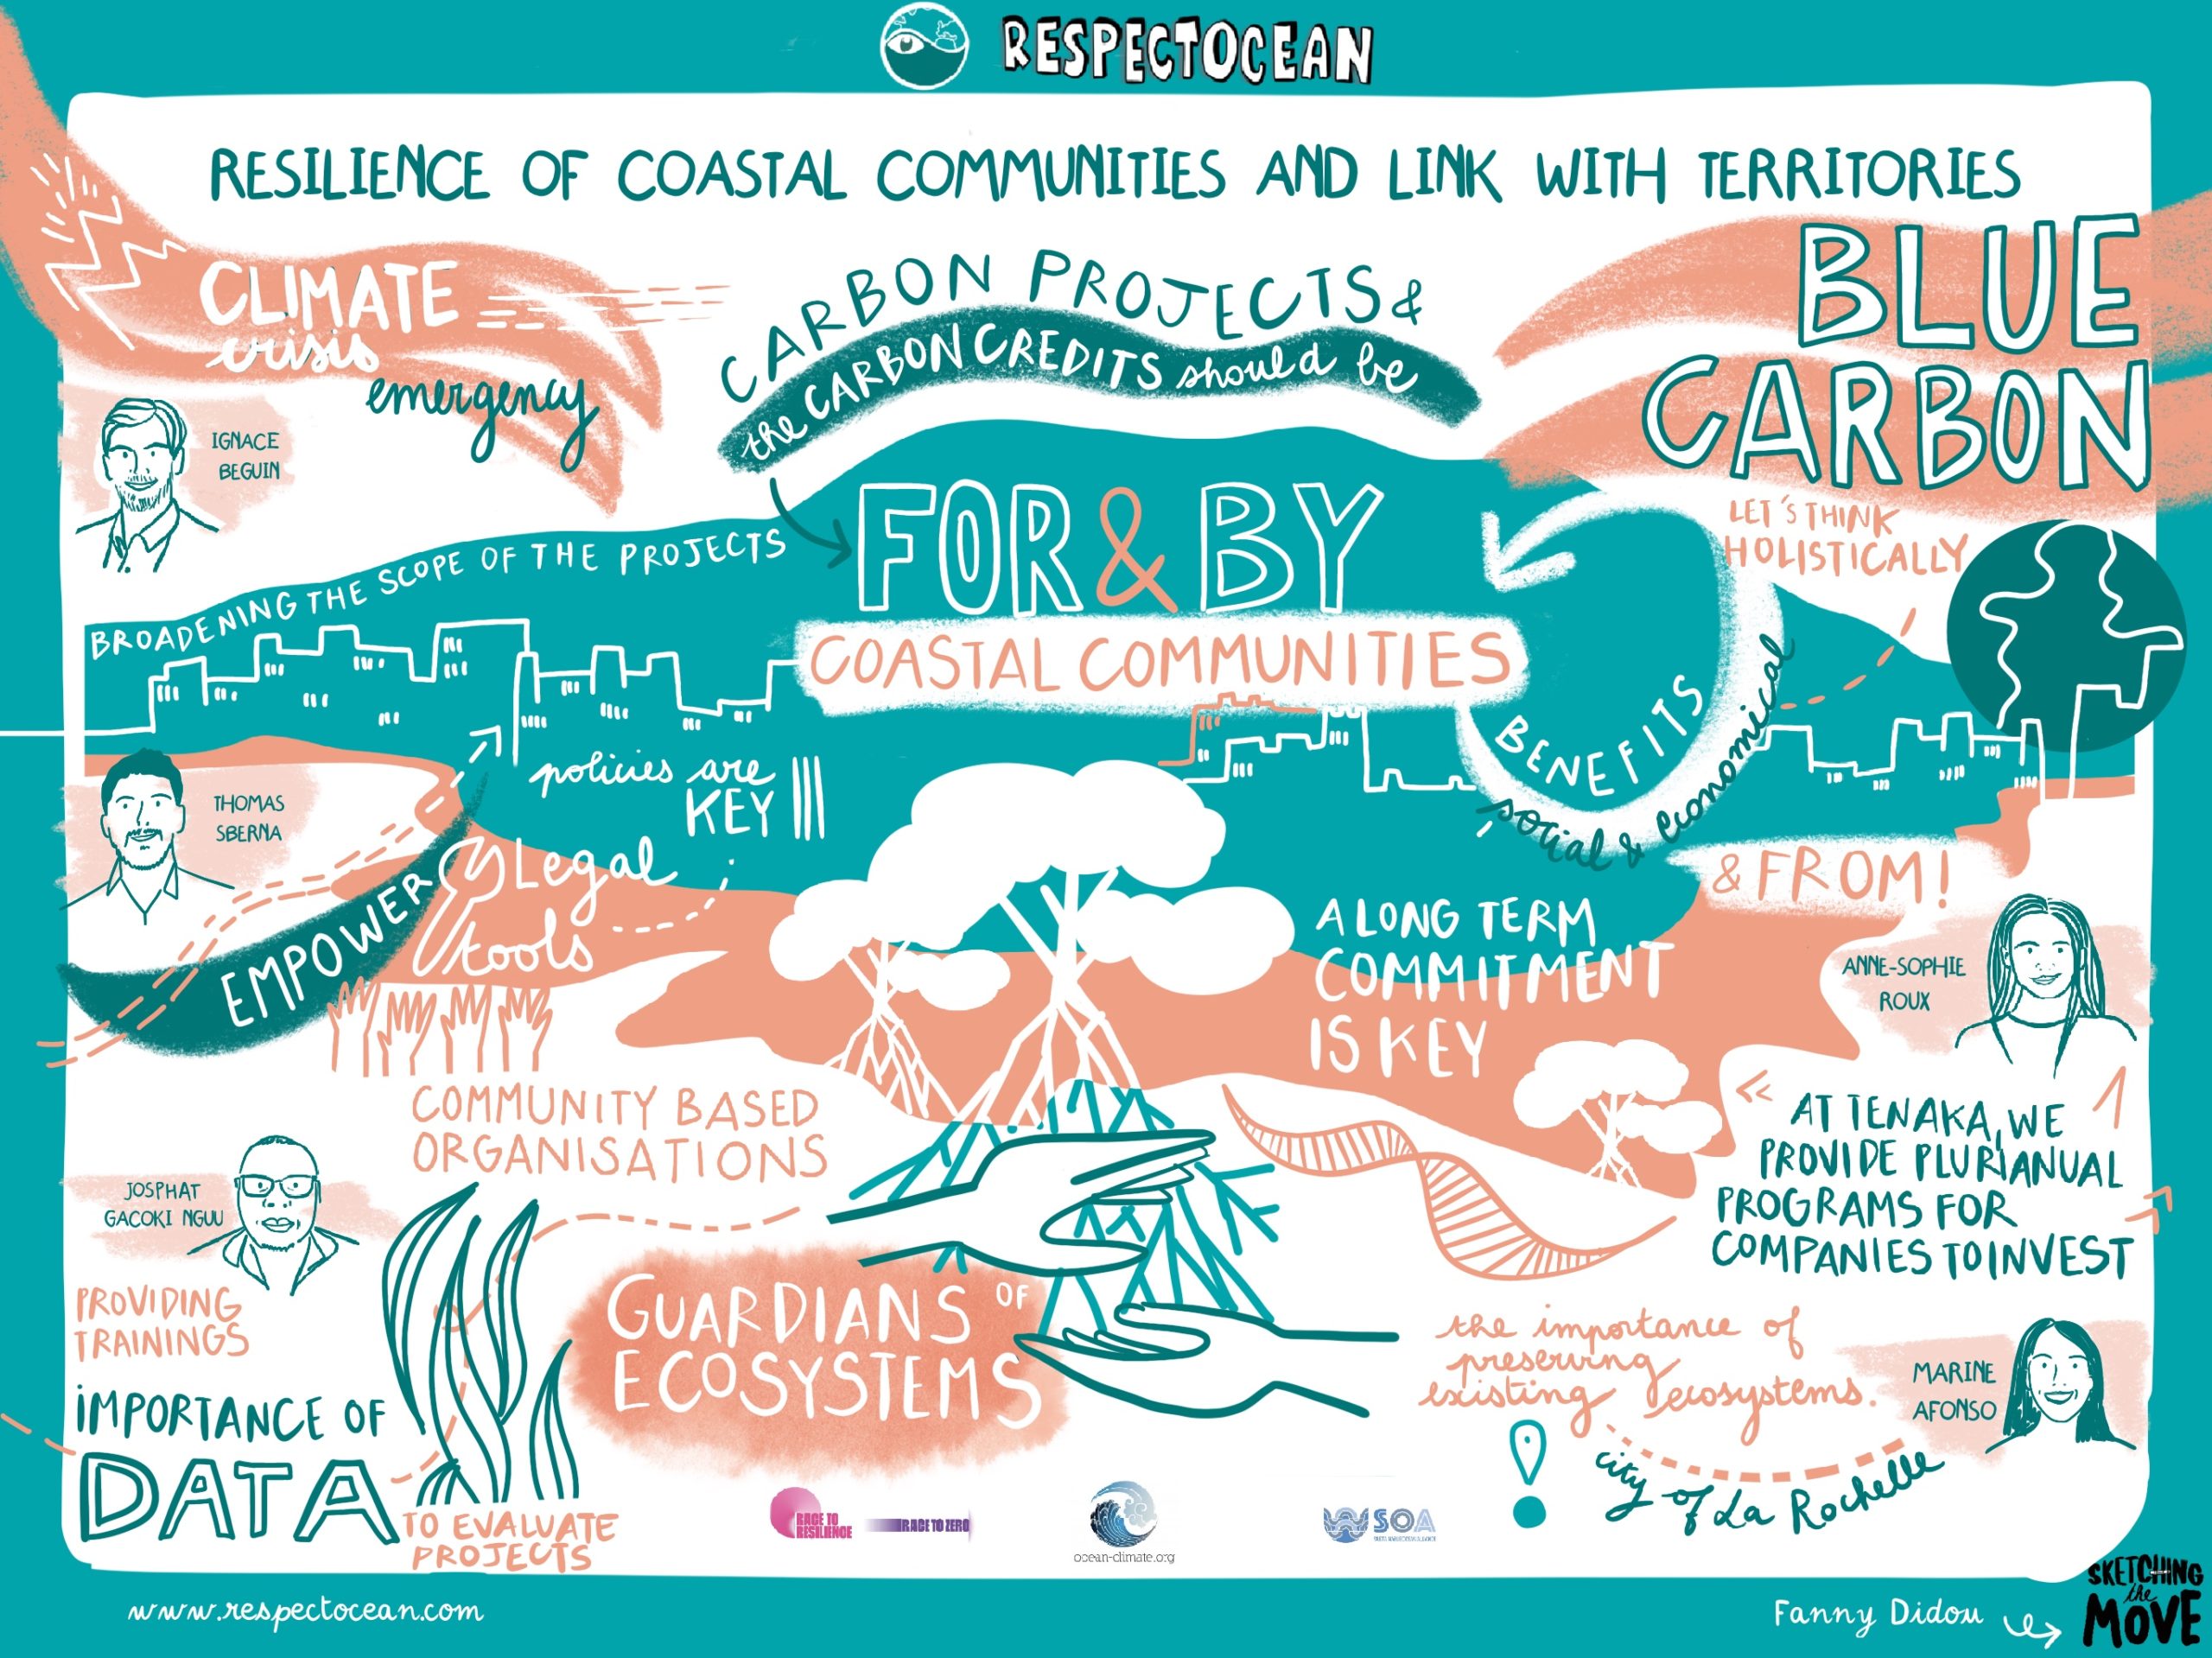 RESPECTOCEAN
RESILIENCE OF COASTAL COMMUNITIES AND LINK WITH TERRITORIES
CLIMATE
crisis
emergency
IGNACE
BEGUIN
CARBON PROJECTS &
the CARBON CREDITS should be
FOR & BY
COASTAL COMMUNITIES
BLUE
CARBON
LET'S THINK
HOLISTICALLY
BROADENING THE SCOPE OF THE PROJECTS
BENEFITS
social & economical
& FROM!
THOMAS
SBERNA
policies are
KEY
EMPOWER
Legal
tools
COMMUNITY BASED
ORGANISATIONS
A LONG TERM
COMMITMENT
IS KEY
ANNE-SOPHIE
ROUX
« AT TENAKA, WE
PROVIDE PLURIANUAL
PROGRAMS FOR
COMPANIES TO INVEST »
JOSPHAT
GACOKI NGUU
PROVIDING
TRAININGS
IMPORTANCE OF
DATA
TO EVALUATE
PROJECTS
GUARDIANS OF
ECOSYSTEMS
the importance of
preserving
existing ecosystems.
MARINE
AFONSO
city of La Rochelle
RACE TO
RESILIENCE
RACE TO ZERO
ocean-climate.org
SOA
www.respectocean.com
Fanny Didou
SKETCHING
the
MOVE